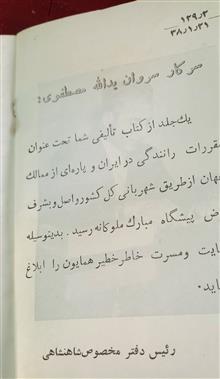 ۱۳۹٫۳
۳۸٫۱٫۳۱
سرکار سروان یدالله مصطفوی:
یك جلد از کتاب تألیفی شما تحت عنوان
مقررات رانندگی در ایران و پاره‌ای از ممالك
جهان ازطریق شهربانی کل کشور واصل و بشرف
ض پیشگاه مبارك ملوکانه رسید. بدینوسیله
ایت ومسرت خاطر خطیر همایون را ابلاغ
اید.
رئیس دفتر مخصوص شاهنشاهی